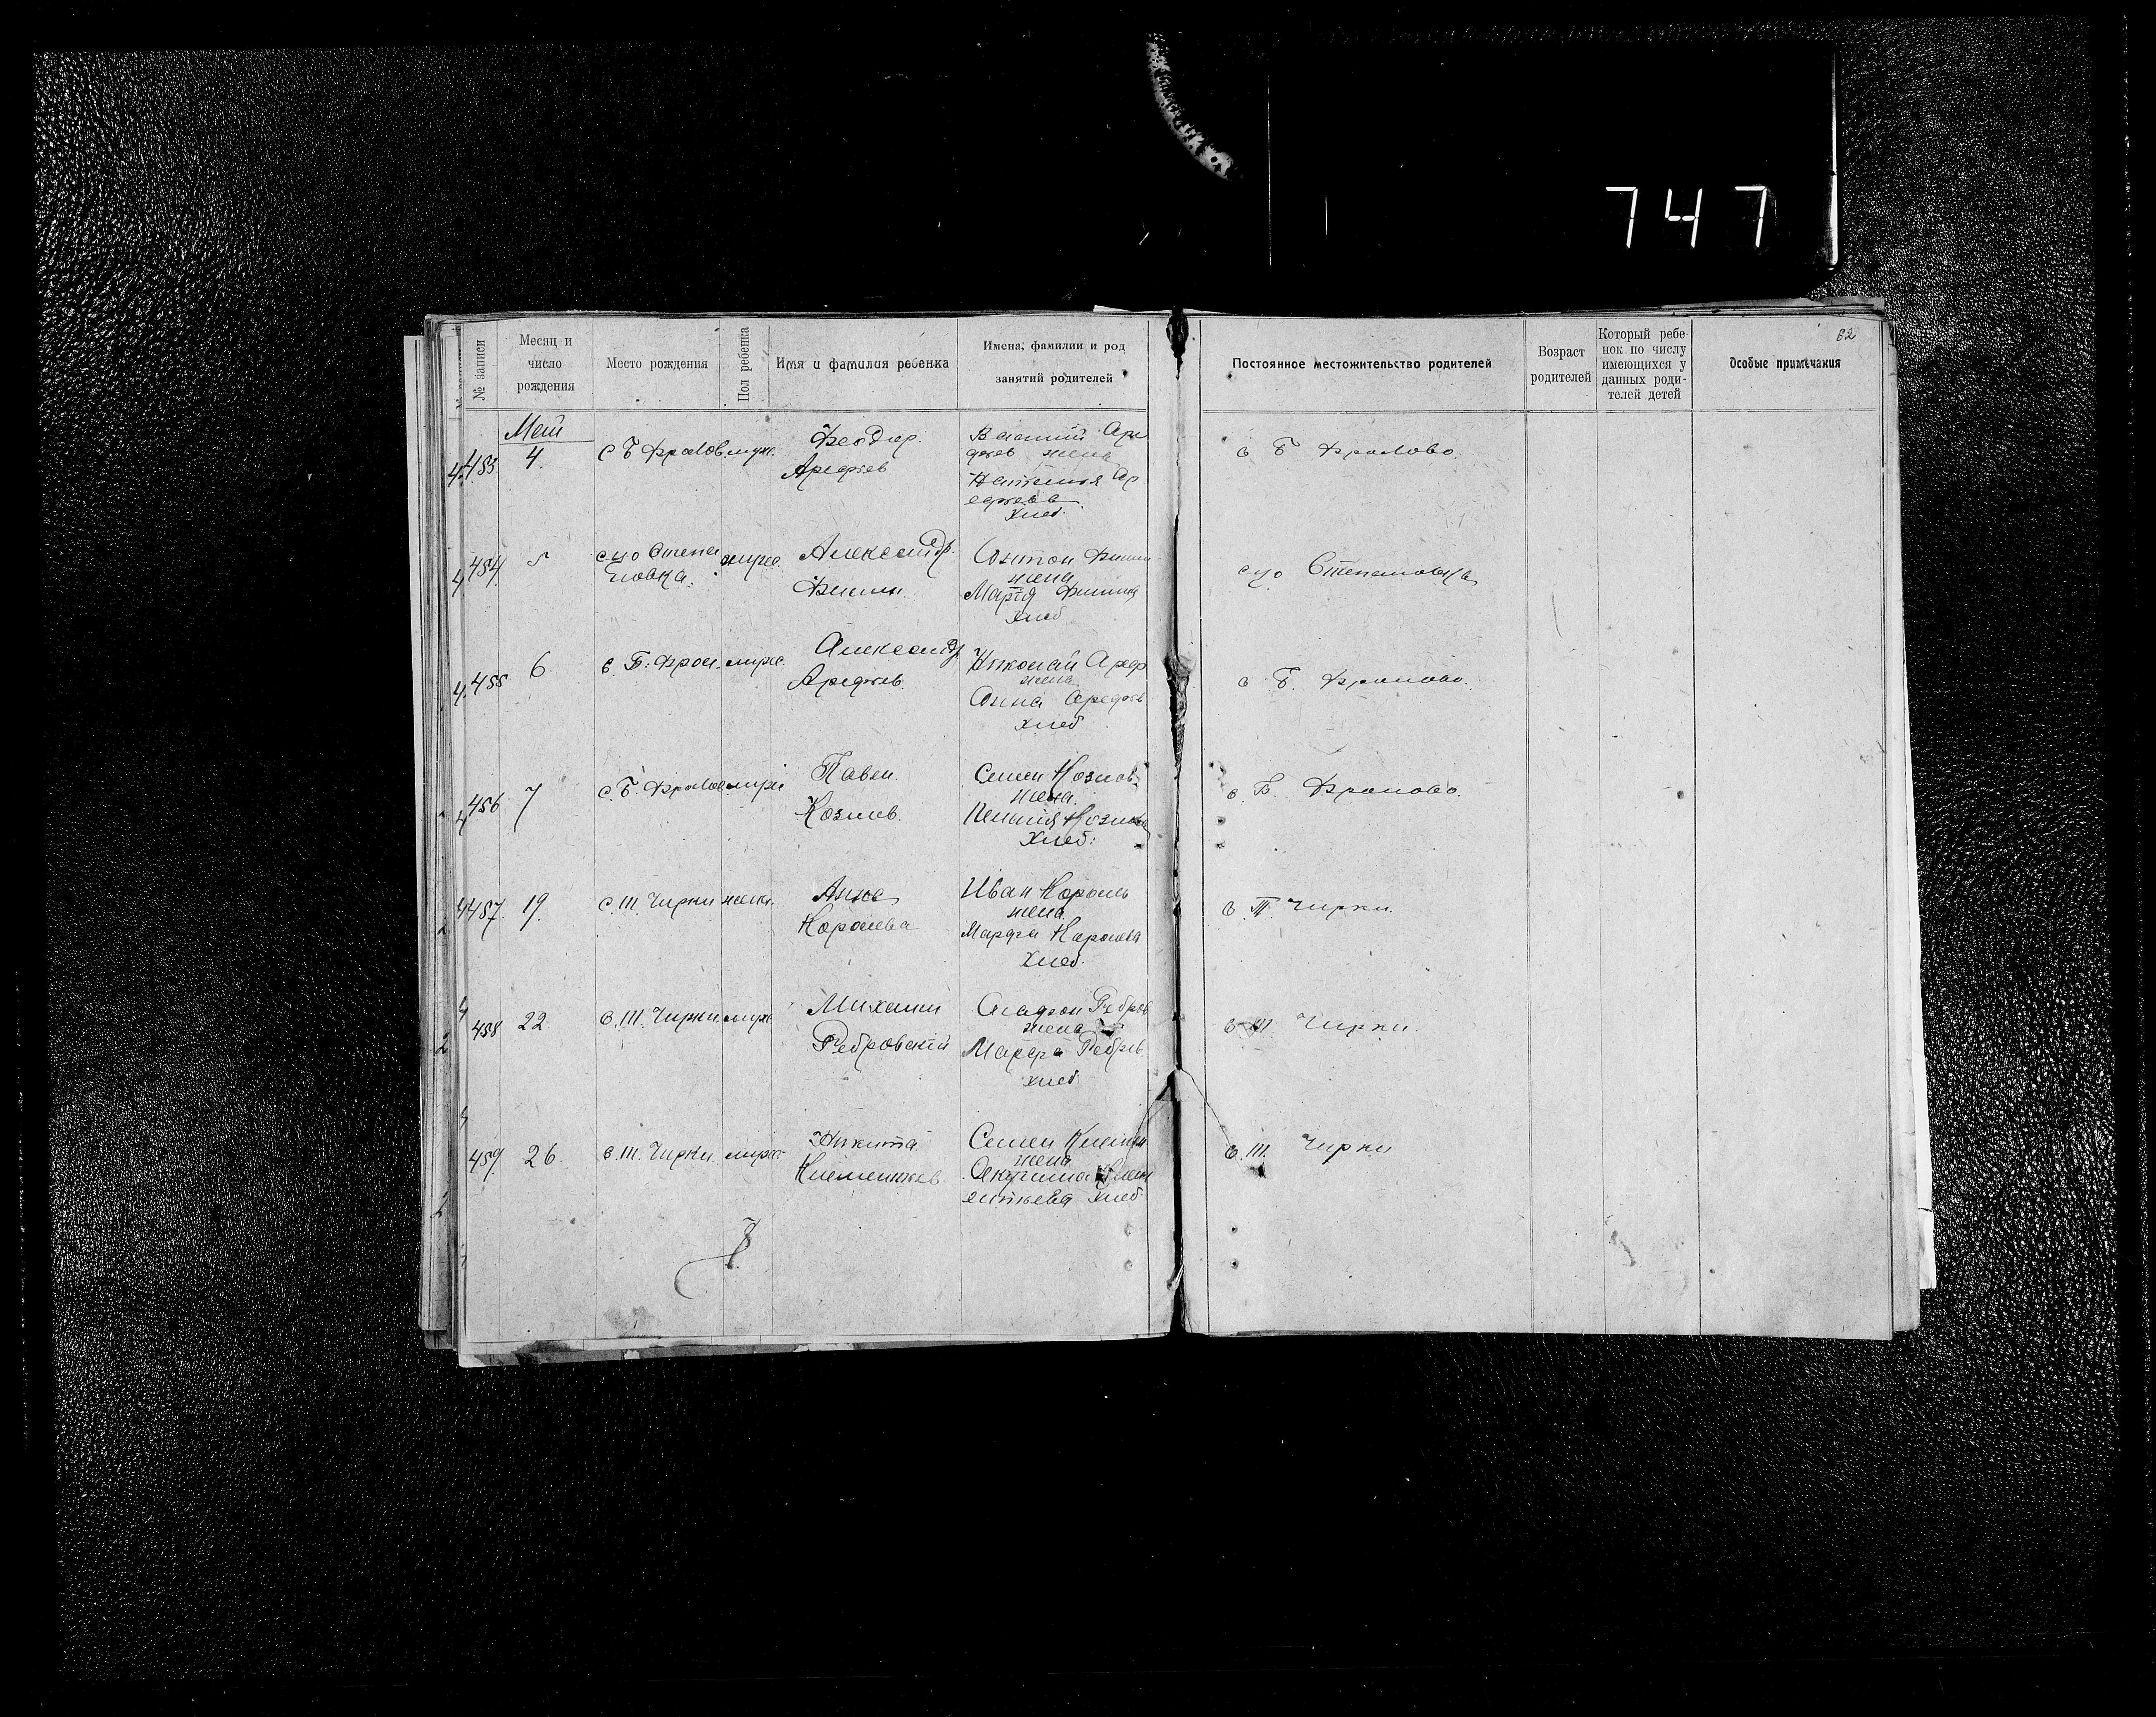 747
82
№ записи
Месяц и
число
рождения
Место рождения
Пол ребенка
Имя и фамилия ребенка
Имена, фамилии и род
занятий родителей
Постоянное местожительство родителей
Возраст
родителей
Который ребе-
нок по числу
имеющихся у
данных роди-
телей детей
Особые примечания
Май
483 4. с Б Фролов. муж. Феодор. Арефьев
Василий Аре
фьев жена
Наталия Ар
ефьева
Хлеб.
с Б Фролово.
484 5 с-цо Степа
новка. муж. Александр. Фишин
Антон Фишин
жена
Мария Фишина
Хлеб
с-цо Степановка
485 6 с. Б. Фрол. муж. Александр Арефьев.
Николай Ареф
жена
Анна Арефьев
хлеб
с Б. Фролово.
486 7 с. Б. Фролов муж Павел. Козлов.
Семен Козлов
жена.
Козлова
Хлеб.
с. Б. Фролово.
487. 19. с. Ш. Чирки женс. Анна Королева
Иван Король
жена
Марфа Королева
Хлеб.
с. Т. Чирки.
488 22 с. Ш. Чирки муж Михаил Ребровский
Агафон Ребров
жена
Марфа Ребров.
хлеб
с Ш Чирки.
489 26. с. Ш. Чирки муж Никита Клементьев
Семен Клемен
жена
Клем
ентьева хлеб
с. Ш. Чирки